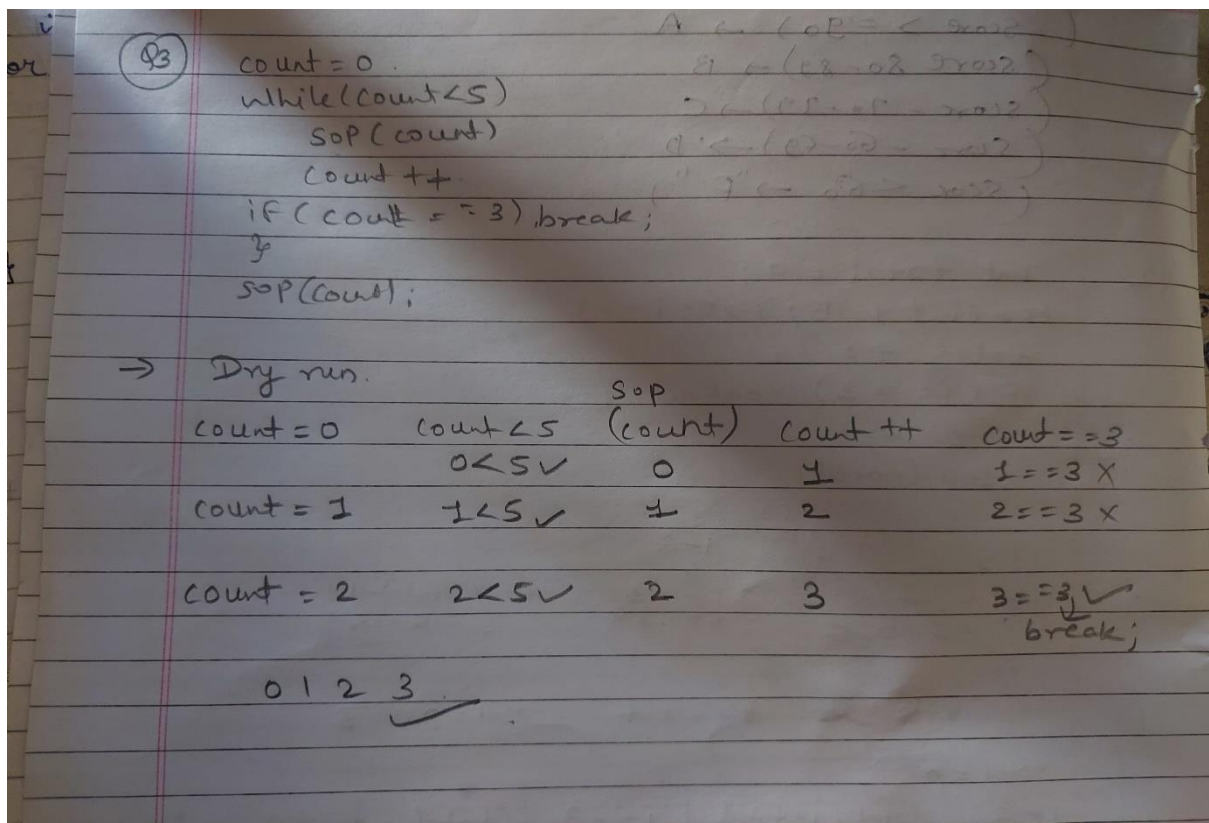 Q3
count = 0.
while(count<5)
sop(count)
count ++
if(count == 3) break;
}
sop(count);
→ Dry run.
count = 0 count<5 sop (count) count ++ count==3
0<5✓ 0 1 1==3 X
count = 1 1<5✓ 1 2 2==3 X
count = 2 2<5✓ 2 3 3==3✓
break;
0 1 2 3 ✓